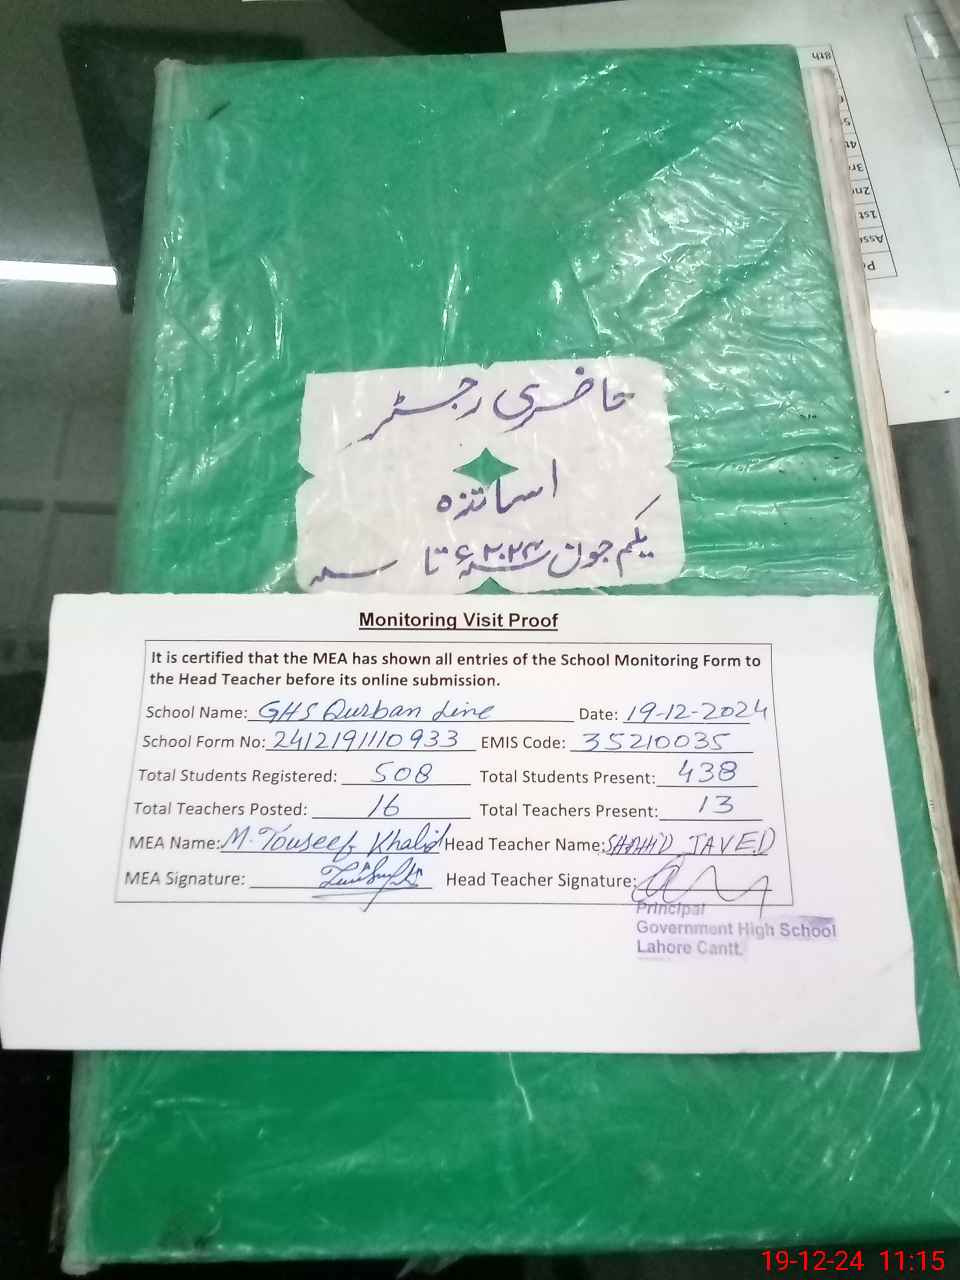 حاضری رجسٹر
اساتذہ
یکم جون ۲۰۲۳ء تا
Monitoring Visit Proof
It is certified that the MEA has shown all entries of the School Monitoring Form to
the Head Teacher before its online submission.
School Name: GHS Qurban Line Date: 19-12-2024
School Form No: 2412191110933 EMIS Code: 35210035
Total Students Registered: 508 Total Students Present: 438
Total Teachers Posted: 16 Total Teachers Present: 13
MEA Name: M. Touseef Khalid Head Teacher Name: SHAHID JAVED
MEA Signature: Head Teacher Signature:
Principal
Government High School
Lahore Cantt.
8th
4th
3rd
2nd
1st
19-12-24 11:15